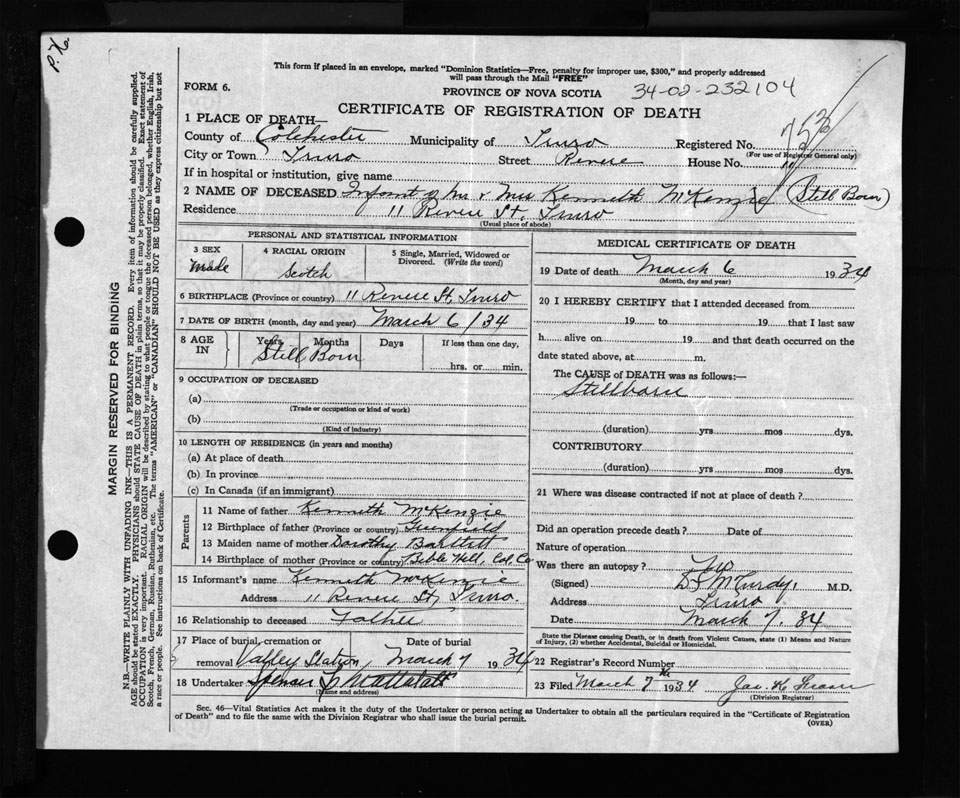 P. Xa
This form if placed in an envelope, marked "Dominion Statistics—Free, penalty for improper use, $300," and properly addressed
will pass through the Mail "FREE"
FORM 6.
PROVINCE OF NOVA SCOTIA 34-02-232104
CERTIFICATE OF REGISTRATION OF DEATH
1 PLACE OF DEATH—
County of Colchester Municipality of Truro Registered No. 753
(For use of Registrar General only)
City or Town Truro Street Revere House No. 11
If in hospital or institution, give name
2 NAME OF DECEASED Infant of Mr & Mrs Kenneth McKenzie (Still Born)
Residence 11 Revere St, Truro
(Usual place of abode)
PERSONAL AND STATISTICAL INFORMATION
3 SEX 4 RACIAL ORIGIN 5 Single, Married, Widowed or
Divorced. (Write the word)
Male Scotch
6 BIRTHPLACE (Province or country) 11 Revere St, Truro
7 DATE OF BIRTH (month, day and year) March 6/34
8 AGE IN Years Months Days If less than one day,
Still Born
hrs. or min.
9 OCCUPATION OF DECEASED
(a)
(Trade or occupation or kind of work)
(b)
(Kind of industry)
10 LENGTH OF RESIDENCE (in years and months)
(a) At place of death
(b) In province
(c) In Canada (if an immigrant)
Parents
11 Name of father Kenneth McKenzie
12 Birthplace of father (Province or country) Greenfield
13 Maiden name of mother Dorothy Bartlett
14 Birthplace of mother (Province or country) Bible Hill, Col. Co
15 Informant's name Kenneth McKenzie
Address 11 Revere St, Truro.
16 Relationship to deceased Father
17 Place of burial, cremation or Date of burial
removal Valley Station, March 7 1934
18 Undertaker Spencer
(Name and address)
MEDICAL CERTIFICATE OF DEATH
19 Date of death March 6 1934
(Month, day and year)
20 I HEREBY CERTIFY that I attended deceased from
19 to 19 that I last saw
h alive on 19 and that death occurred on the
date stated above, at m.
The CAUSE of DEATH was as follows:—
Stillborn
(duration) yrs mos dys.
CONTRIBUTORY
(duration) yrs mos dys.
21 Where was disease contracted if not at place of death?
Did an operation precede death? Date of
Nature of operation
Was there an autopsy?
(Signed) McCurdy, M.D.
Address Truro
Date March 7. 34
State the Disease causing Death, or in death from Violent Causes, state (1) Means and Nature
of Injury, (2) whether Accidental, Suicidal or Homicidal.
22 Registrar's Record Number
23 Filed March 7th 1934
(Division Registrar)
Sec. 46—Vital Statistics Act makes it the duty of the Undertaker or person acting as Undertaker to obtain all the particulars required in the "Certificate of Registration
of Death" and to file the same with the Division Registrar who shall issue the burial permit.
(OVER)
MARGIN RESERVED FOR BINDING
N.B.—WRITE PLAINLY WITH UNFADING INK—THIS IS A PERMANENT RECORD. Every item of information should be carefully supplied.
AGE should be stated EXACTLY. PHYSICIANS should STATE CAUSE OF DEATH in plain terms, so that it may be properly classified. Exact statement of
OCCUPATION is very important. RACIAL ORIGIN will be described by stating to what people or tongue the deceased person belonged, whether English, Irish,
Scotch, French, German, Russian, Ruthenian, etc. The terms "AMERICAN" or "CANADIAN" SHOULD NOT BE USED as they express citizenship but not
a race or people. See instructions on back of Certificate.